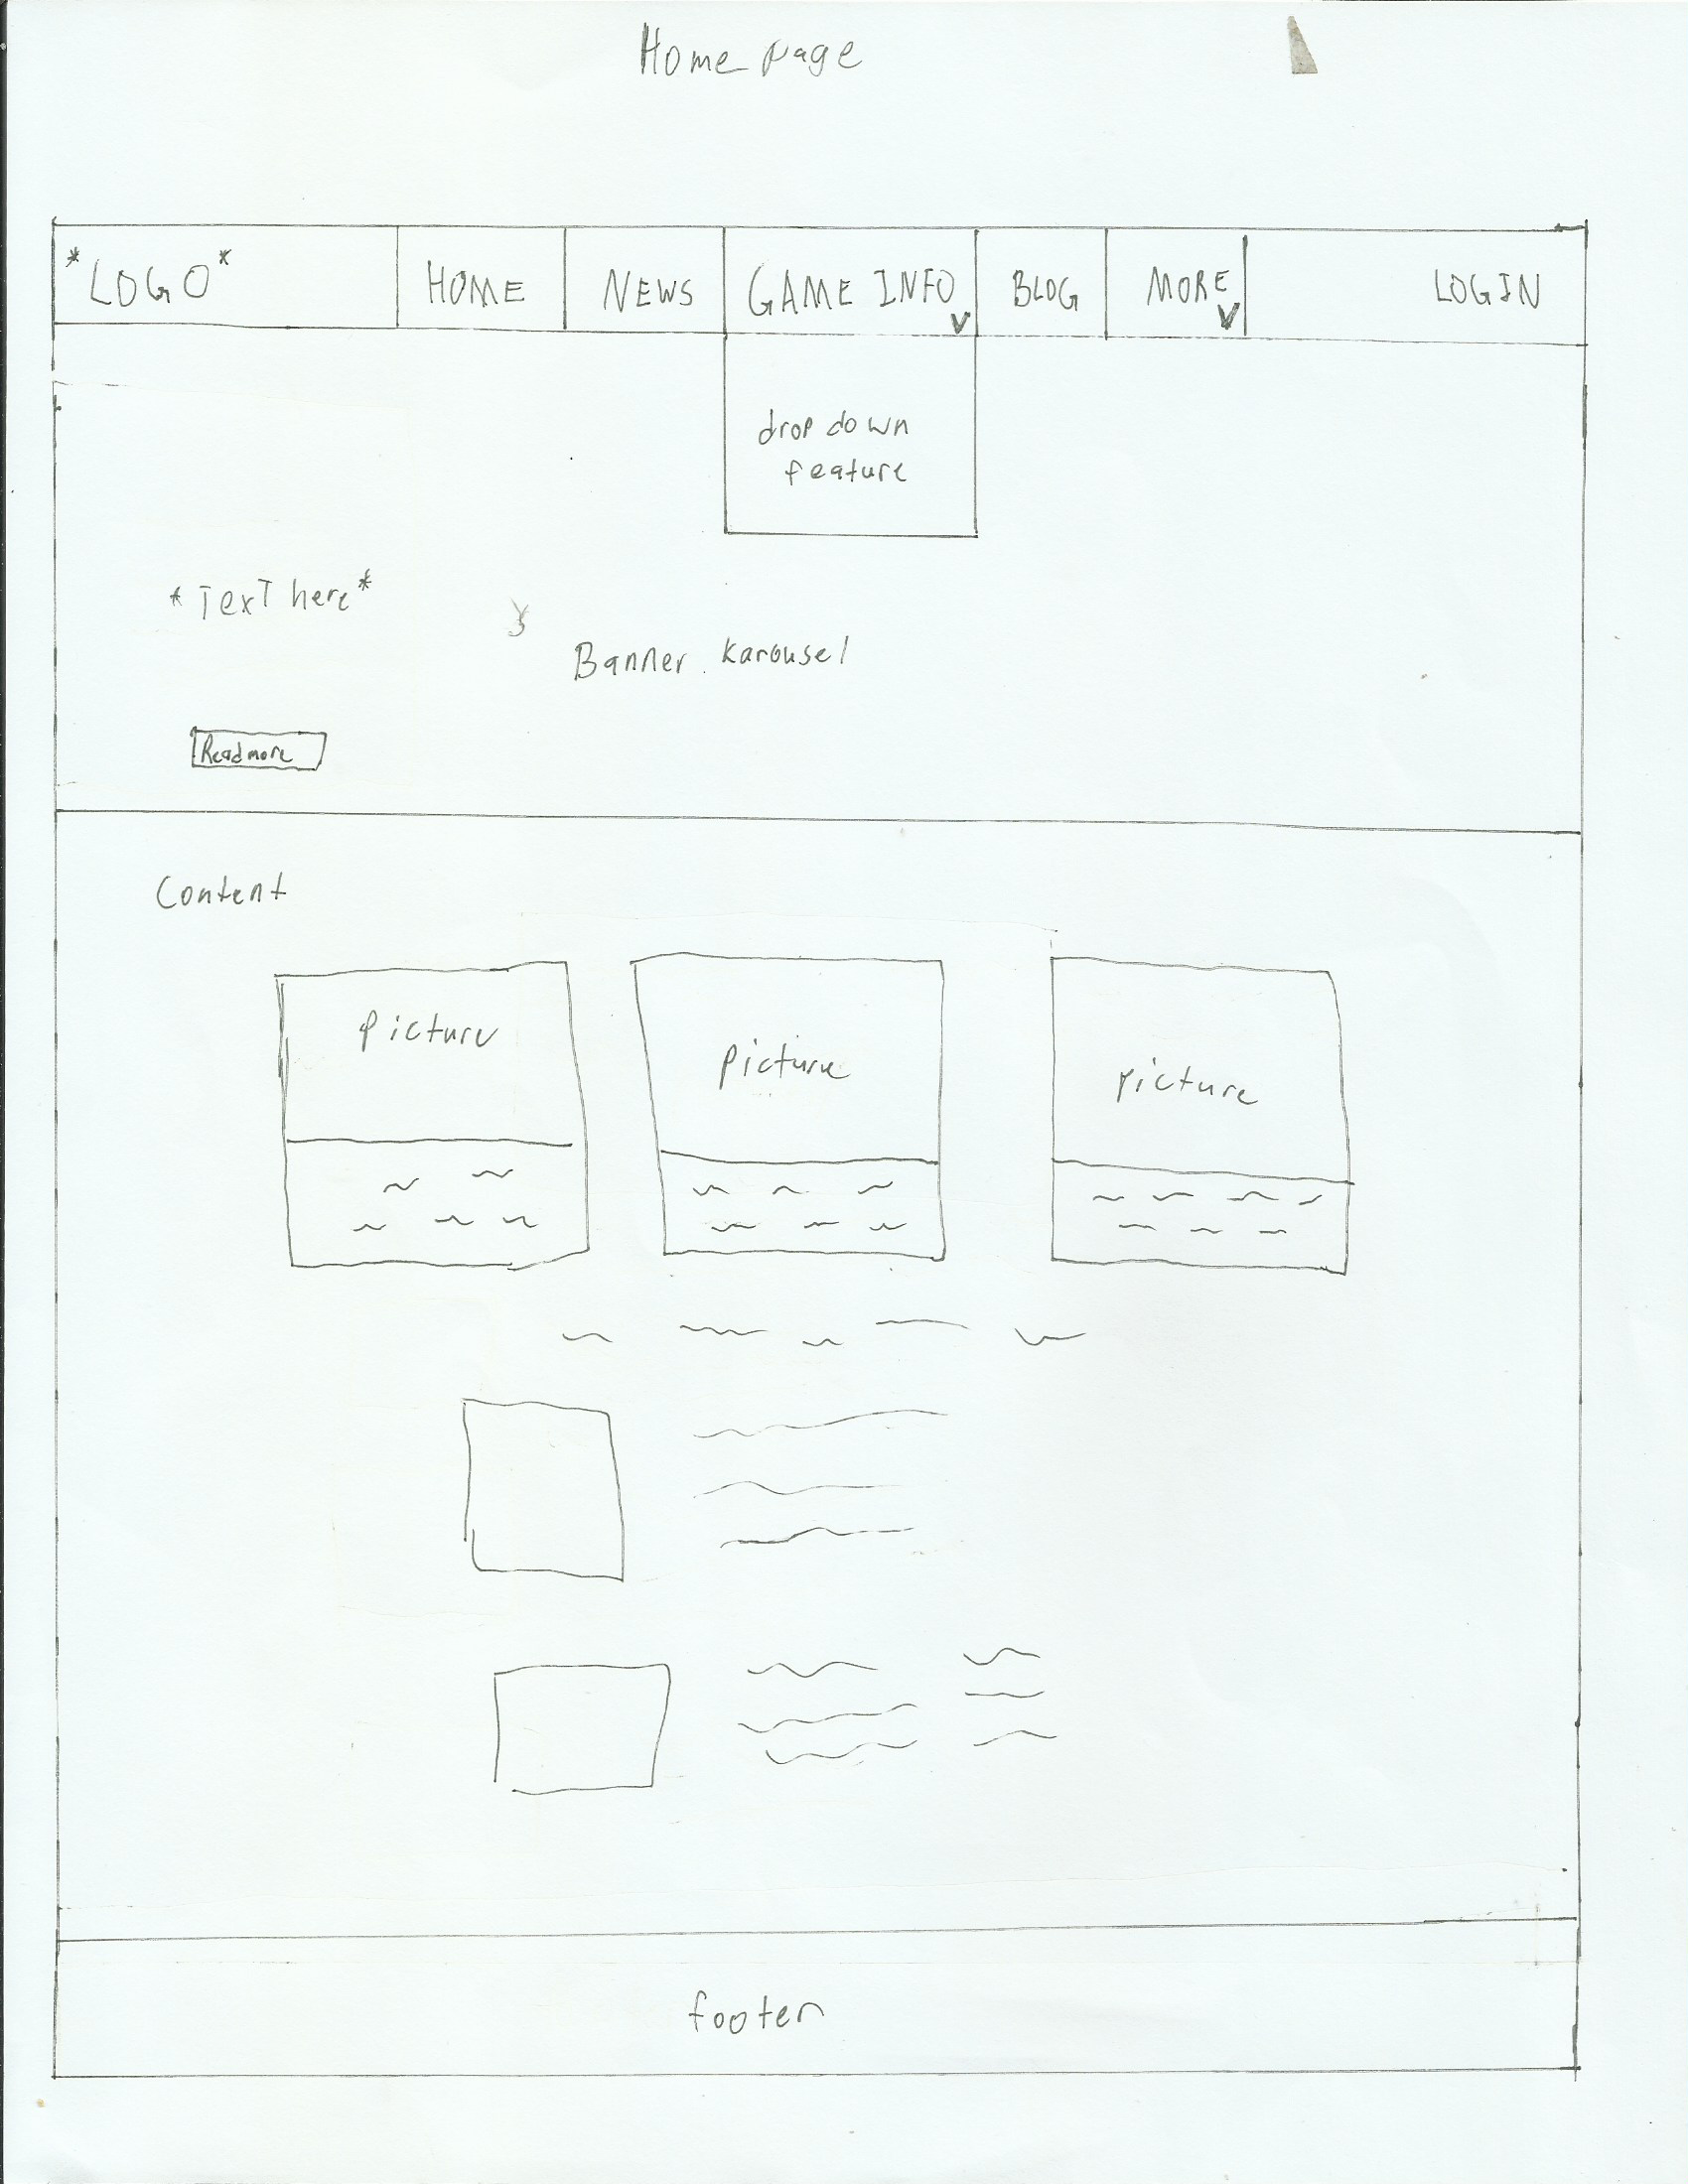 Home page
*LOGO*
HOME
NEWS
GAME INFO
BLOG
MORE
LOGIN
drop down
feature
*Text here*
Banner karousel
Read more
Content
picture
picture
picture
footer